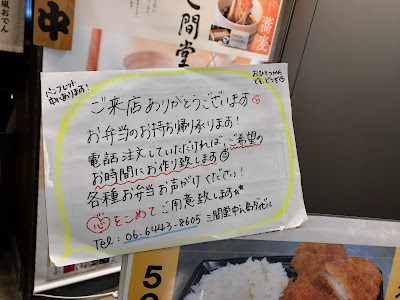 風おでん
中
間堂
蕎麦
パンフレット
中にあります！
おひとつから
でも、どうぞ☺
ご来店ありがとうございます☺
お弁当のお持ち帰り承ります！
電話注文していただければ、ご希望の
お時間にお作り致します☺
各種お弁当お声がけください！
心をこめてご用意致します★★
Tel：06-6443-8605 二間堂中之島ダイビル
5